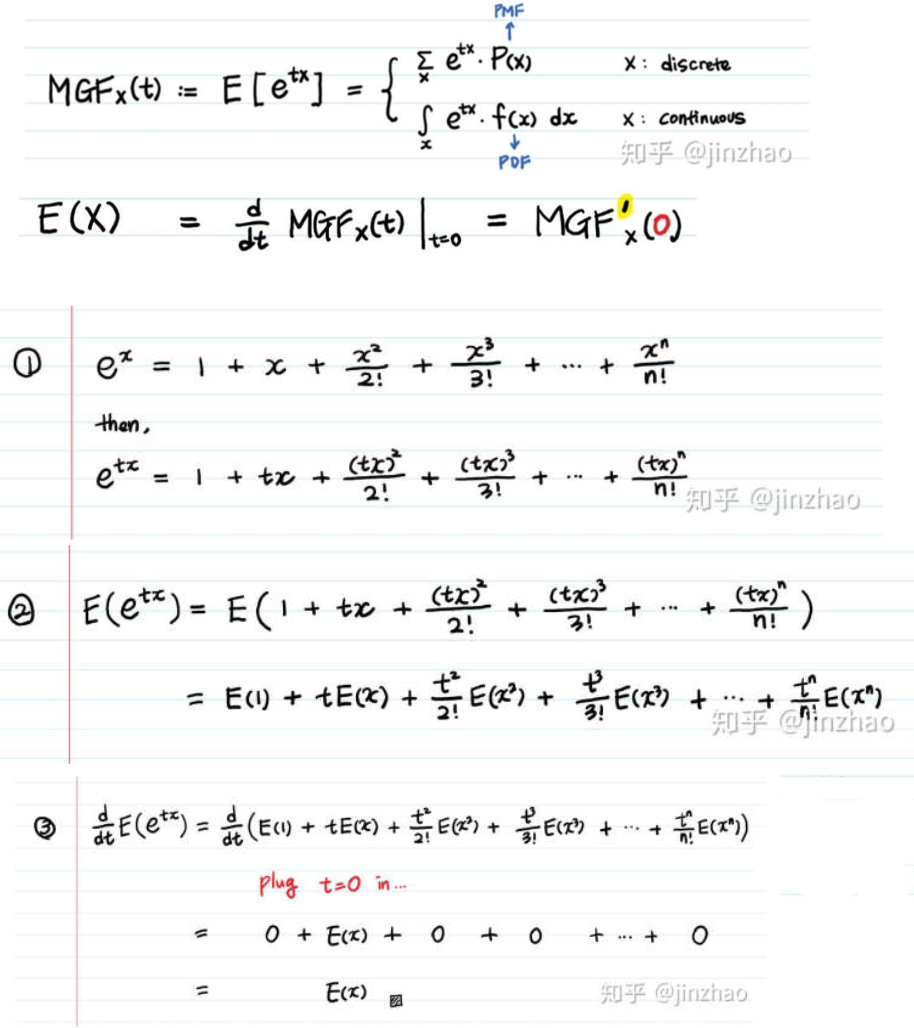 PMF
↑
MGFₓ(t) := E[eᵗˣ] = { Σₓ eᵗˣ · P(x)    x : discrete
∫ₓ eᵗˣ · f(x) dx    x : continuous
↓
PDF
知乎 @jinzhao
E(X) = d/dt MGFₓ(t) |ₜ₌₀ = MGF′ₓ(0)
① eˣ = 1 + x + x²/2! + x³/3! + ··· + xⁿ/n!
then,
eᵗˣ = 1 + tx + (tx)²/2! + (tx)³/3! + ··· + (tx)ⁿ/n!
知乎 @jinzhao
② E(eᵗˣ) = E(1 + tx + (tx)²/2! + (tx)³/3! + ··· + (tx)ⁿ/n!)
= E(1) + tE(x) + t²/2! E(x²) + t³/3! E(x³) + ··· + tⁿ/n! E(xⁿ)
知乎 @jinzhao
③ d/dt E(eᵗˣ) = d/dt (E(1) + tE(x) + t²/2! E(x²) + t³/3! E(x³) + ··· + tⁿ/n! E(xⁿ))
plug t=0 in...
= 0 + E(x) + 0 + 0 + ··· + 0
= E(x)
知乎 @jinzhao